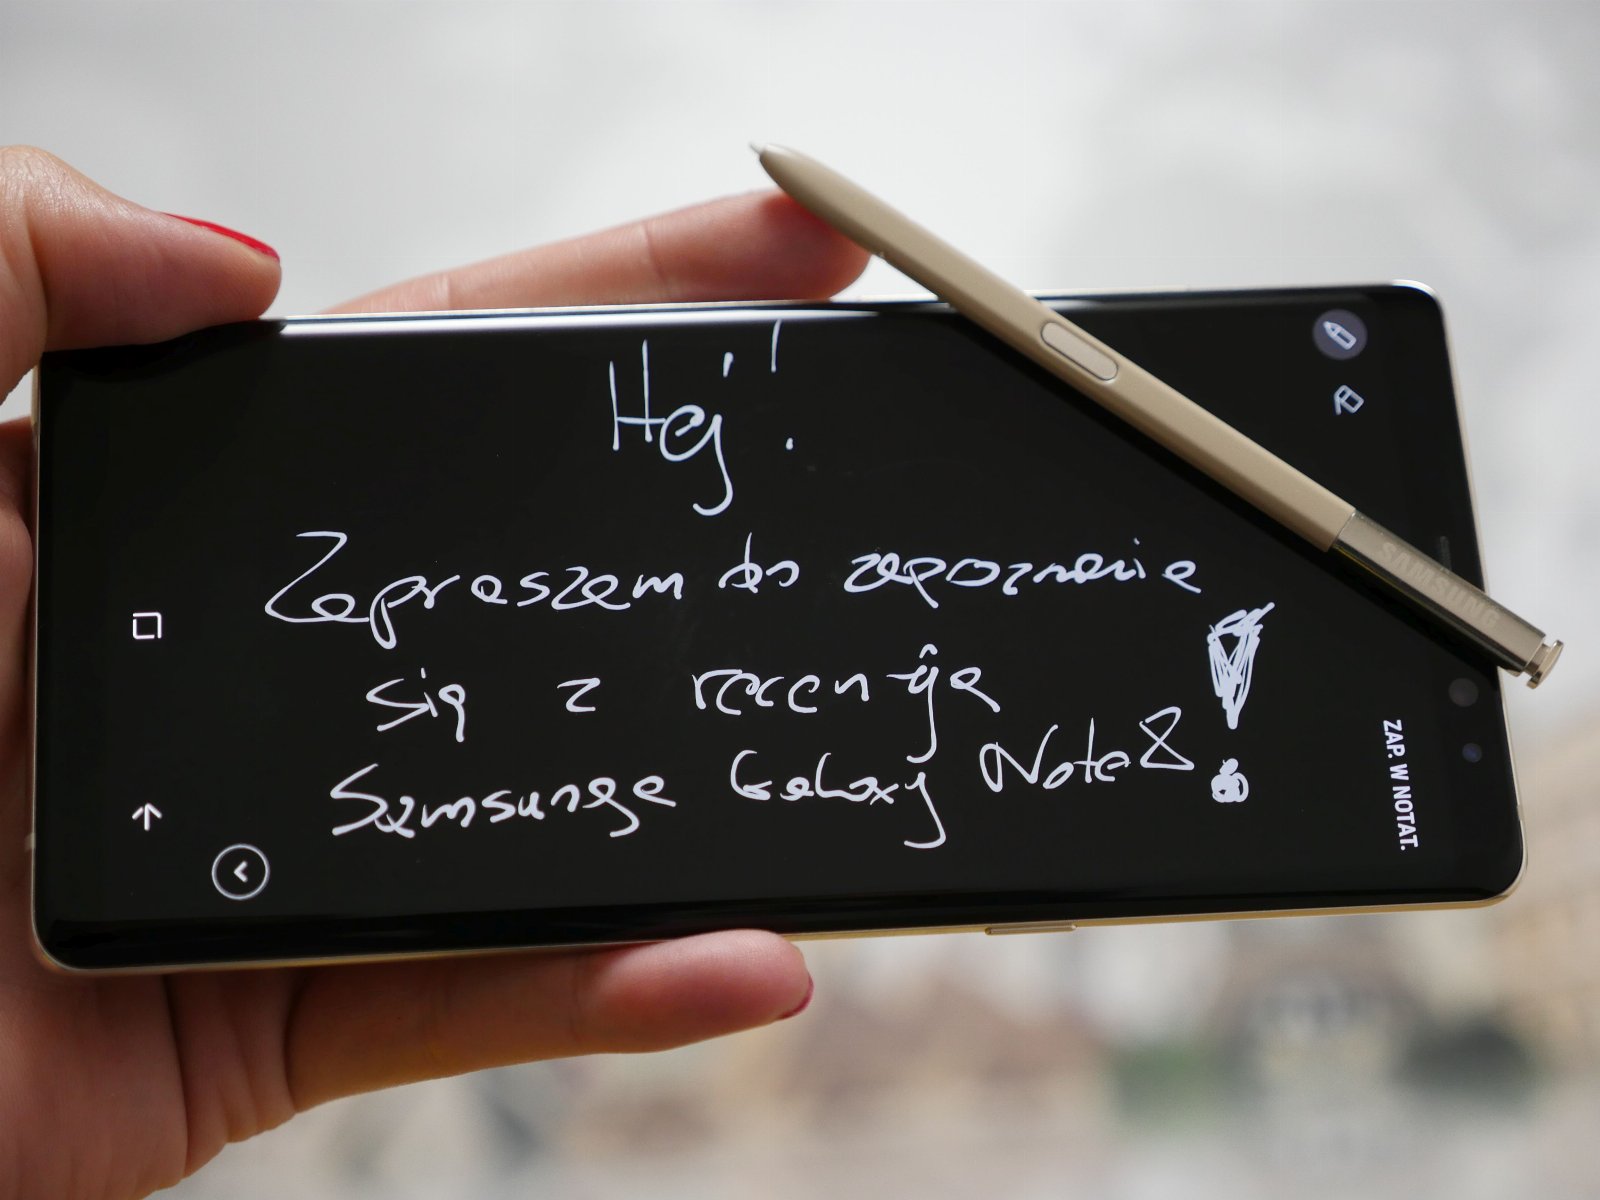 Hej!
Zapraszam do zapoznania
się z recenzją
Samsunga Galaxy Note8!
ZAP. W NOTAT.
SAMSUNG